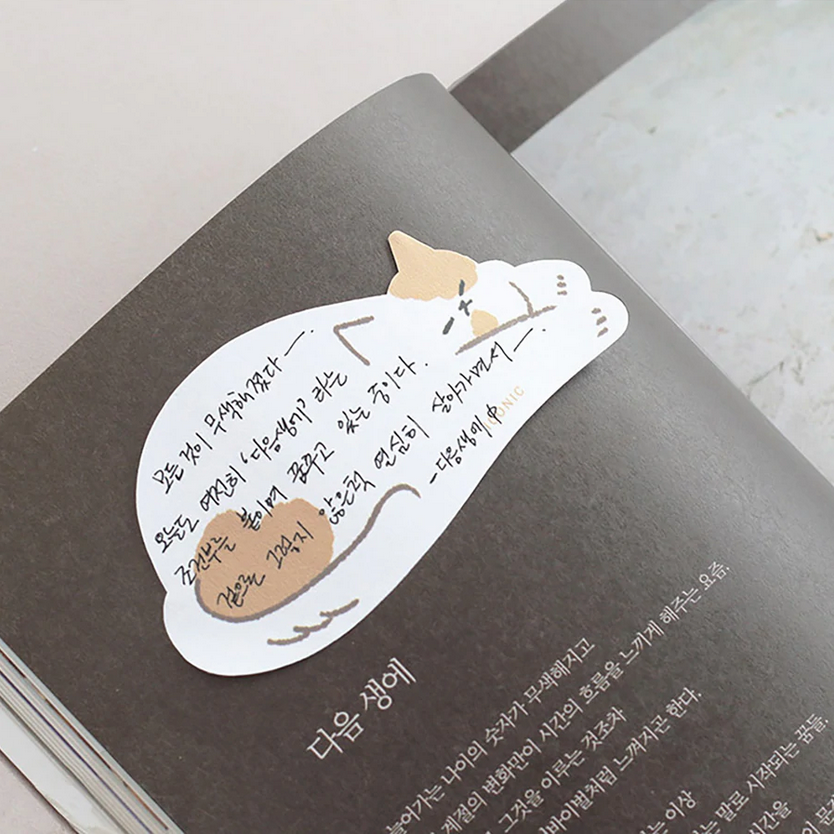 모든 것이 무색해졌다 —.
오늘도 여전히 '다음생에' 라는
조건부를 붙이며 꿈꾸고 있는 중이다.
겉으론 그렇지 않은척 열심히 살아가면서 —.
- 다음생에 中
ICONIC
다음 생에
늘어가는 나이의 숫자가 무색해지고
계절의 변화만이 시간의 흐름을 느끼게 해주는 요즘,
그것을 이루는 것조차
처럼 느껴지곤 한다.
는 이상
는 말로 시작되는 꿈들
시간을